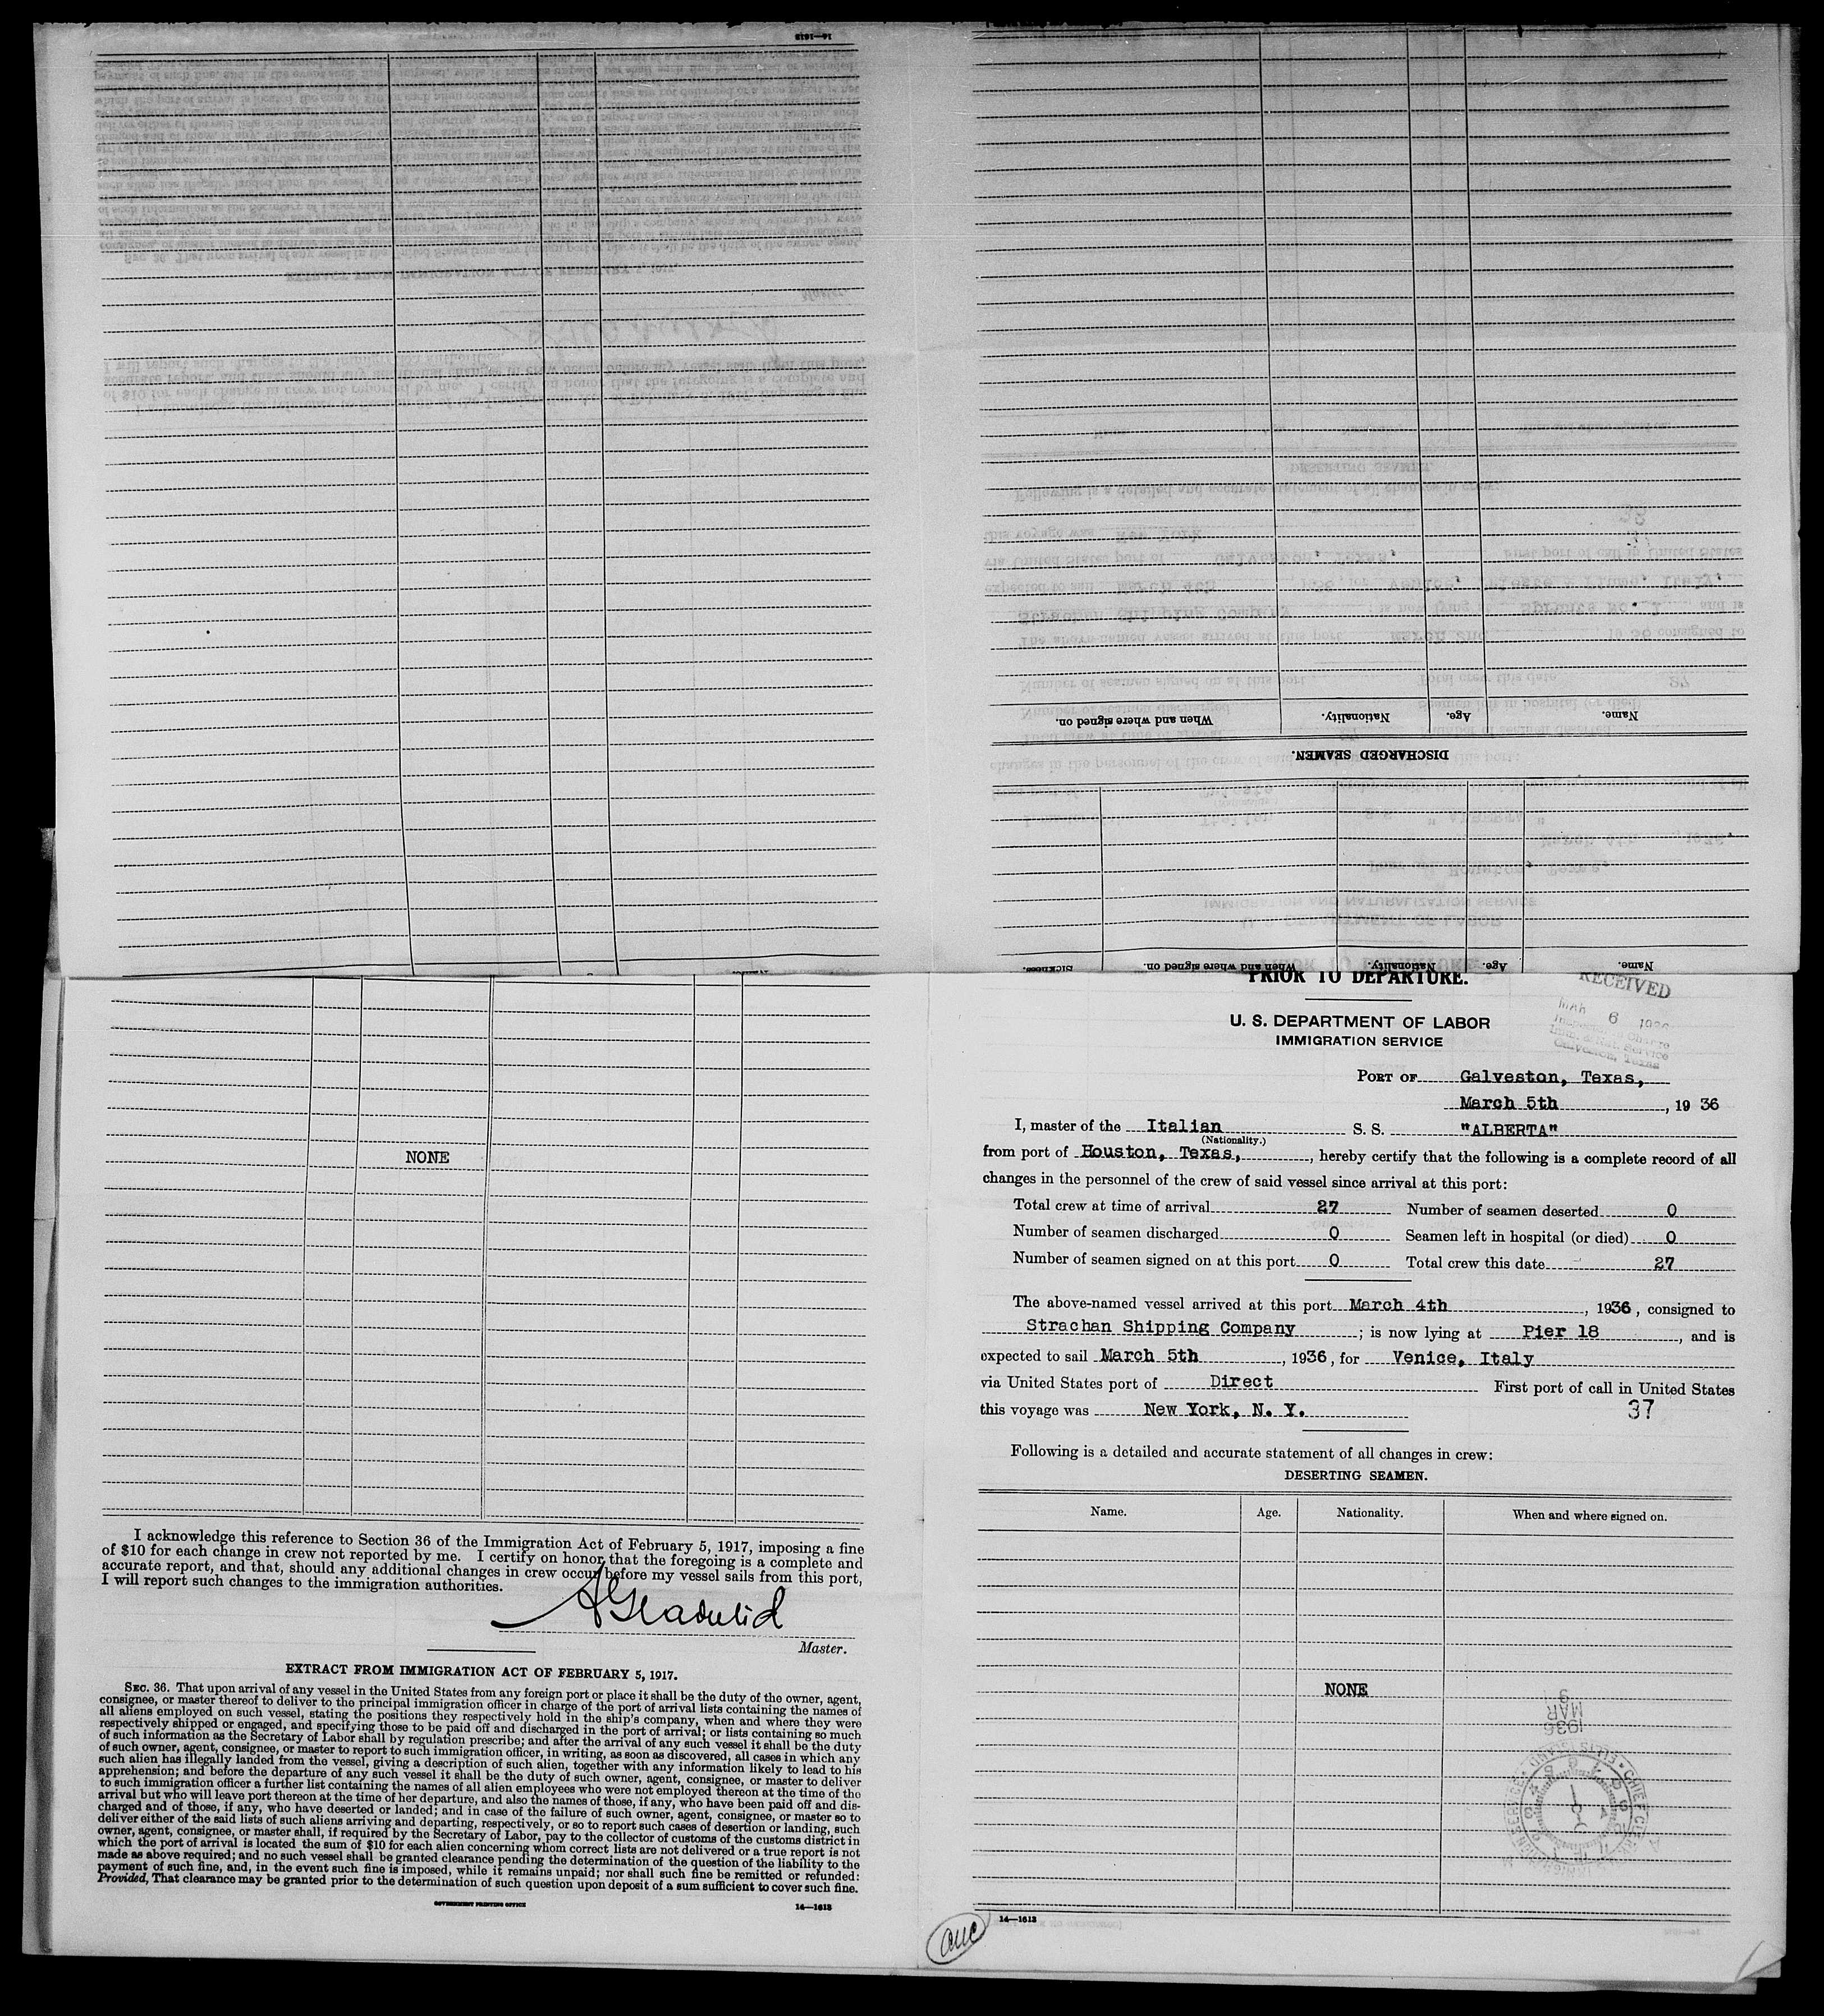 14—1613
When and where signed on.
Nationality.
Age.
Name.
DISCHARGED SEAMEN.
Sickness.
When and where signed on.
Nationality.
Age.
Name.
NONE
I acknowledge this reference to Section 36 of the Immigration Act of February 5, 1917, imposing a fine
of $10 for each change in crew not reported by me. I certify on honor that the foregoing is a complete and
accurate report, and that, should any additional changes in crew occur before my vessel sails from this port,
I will report such changes to the immigration authorities.
Master.
EXTRACT FROM IMMIGRATION ACT OF FEBRUARY 5, 1917.
SEC. 36. That upon arrival of any vessel in the United States from any foreign port or place it shall be the duty of the owner, agent,
consignee, or master thereof to deliver to the principal immigration officer in charge of the port of arrival lists containing the names of
all aliens employed on such vessel, stating the positions they respectively hold in the ship's company, when and where they were
respectively shipped or engaged, and specifying those to be paid off and discharged in the port of arrival; or lists containing so much
of such information as the Secretary of Labor shall by regulation prescribe; and after the arrival of any such vessel it shall be the duty
of such owner, agent, consignee, or master to report to such immigration officer, in writing, as soon as discovered, all cases in which any
such alien has illegally landed from the vessel, giving a description of such alien, together with any information likely to lead to his
apprehension; and before the departure of any such vessel it shall be the duty of such owner, agent, consignee, or master to deliver
to such immigration officer a further list containing the names of all alien employees who were not employed thereon at the time of the
arrival but who will leave port thereon at the time of her departure, and also the names of those, if any, who have been paid off and dis-
charged and of those, if any, who have deserted or landed; and in case of the failure of such owner, agent, consignee, or master so to
deliver either of the said lists of such aliens arriving and departing, respectively, or so to report such cases of desertion or landing, such
owner, agent, consignee, or master shall, if required by the Secretary of Labor, pay to the collector of customs of the customs district in
which the port of arrival is located the sum of $10 for each alien concerning whom correct lists are not delivered or a true report is not
made as above required; and no such vessel shall be granted clearance pending the determination of the question of the liability to the
payment of such fine, and, in the event such fine is imposed, while it remains unpaid; nor shall such fine be remitted or refunded:
Provided, That clearance may be granted prior to the determination of such question upon deposit of a sum sufficient to cover such fine.
GOVERNMENT PRINTING OFFICE
14—1613
PRIOR TO DEPARTURE.
RECEIVED
MAR 6 1936
Galveston, Texas
U. S. DEPARTMENT OF LABOR
IMMIGRATION SERVICE
PORT OF Galveston, Texas,
March 5th, 1936
I, master of the Italian S. S. "ALBERTA"
(Nationality.)
from port of Houston, Texas, , hereby certify that the following is a complete record of all
changes in the personnel of the crew of said vessel since arrival at this port:
Total crew at time of arrival 27 Number of seamen deserted 0
Number of seamen discharged 0 Seamen left in hospital (or died) 0
Number of seamen signed on at this port 0 Total crew this date 27
The above-named vessel arrived at this port March 4th, 1936, consigned to
Strachan Shipping Company ; is now lying at Pier 18, and is
expected to sail March 5th, 1936, for Venice, Italy
via United States port of Direct First port of call in United States
this voyage was New York, N. Y.
37
Following is a detailed and accurate statement of all changes in crew:
DESERTING SEAMEN.
Name. Age. Nationality. When and where signed on.
NONE
1936
MAR
14—1613